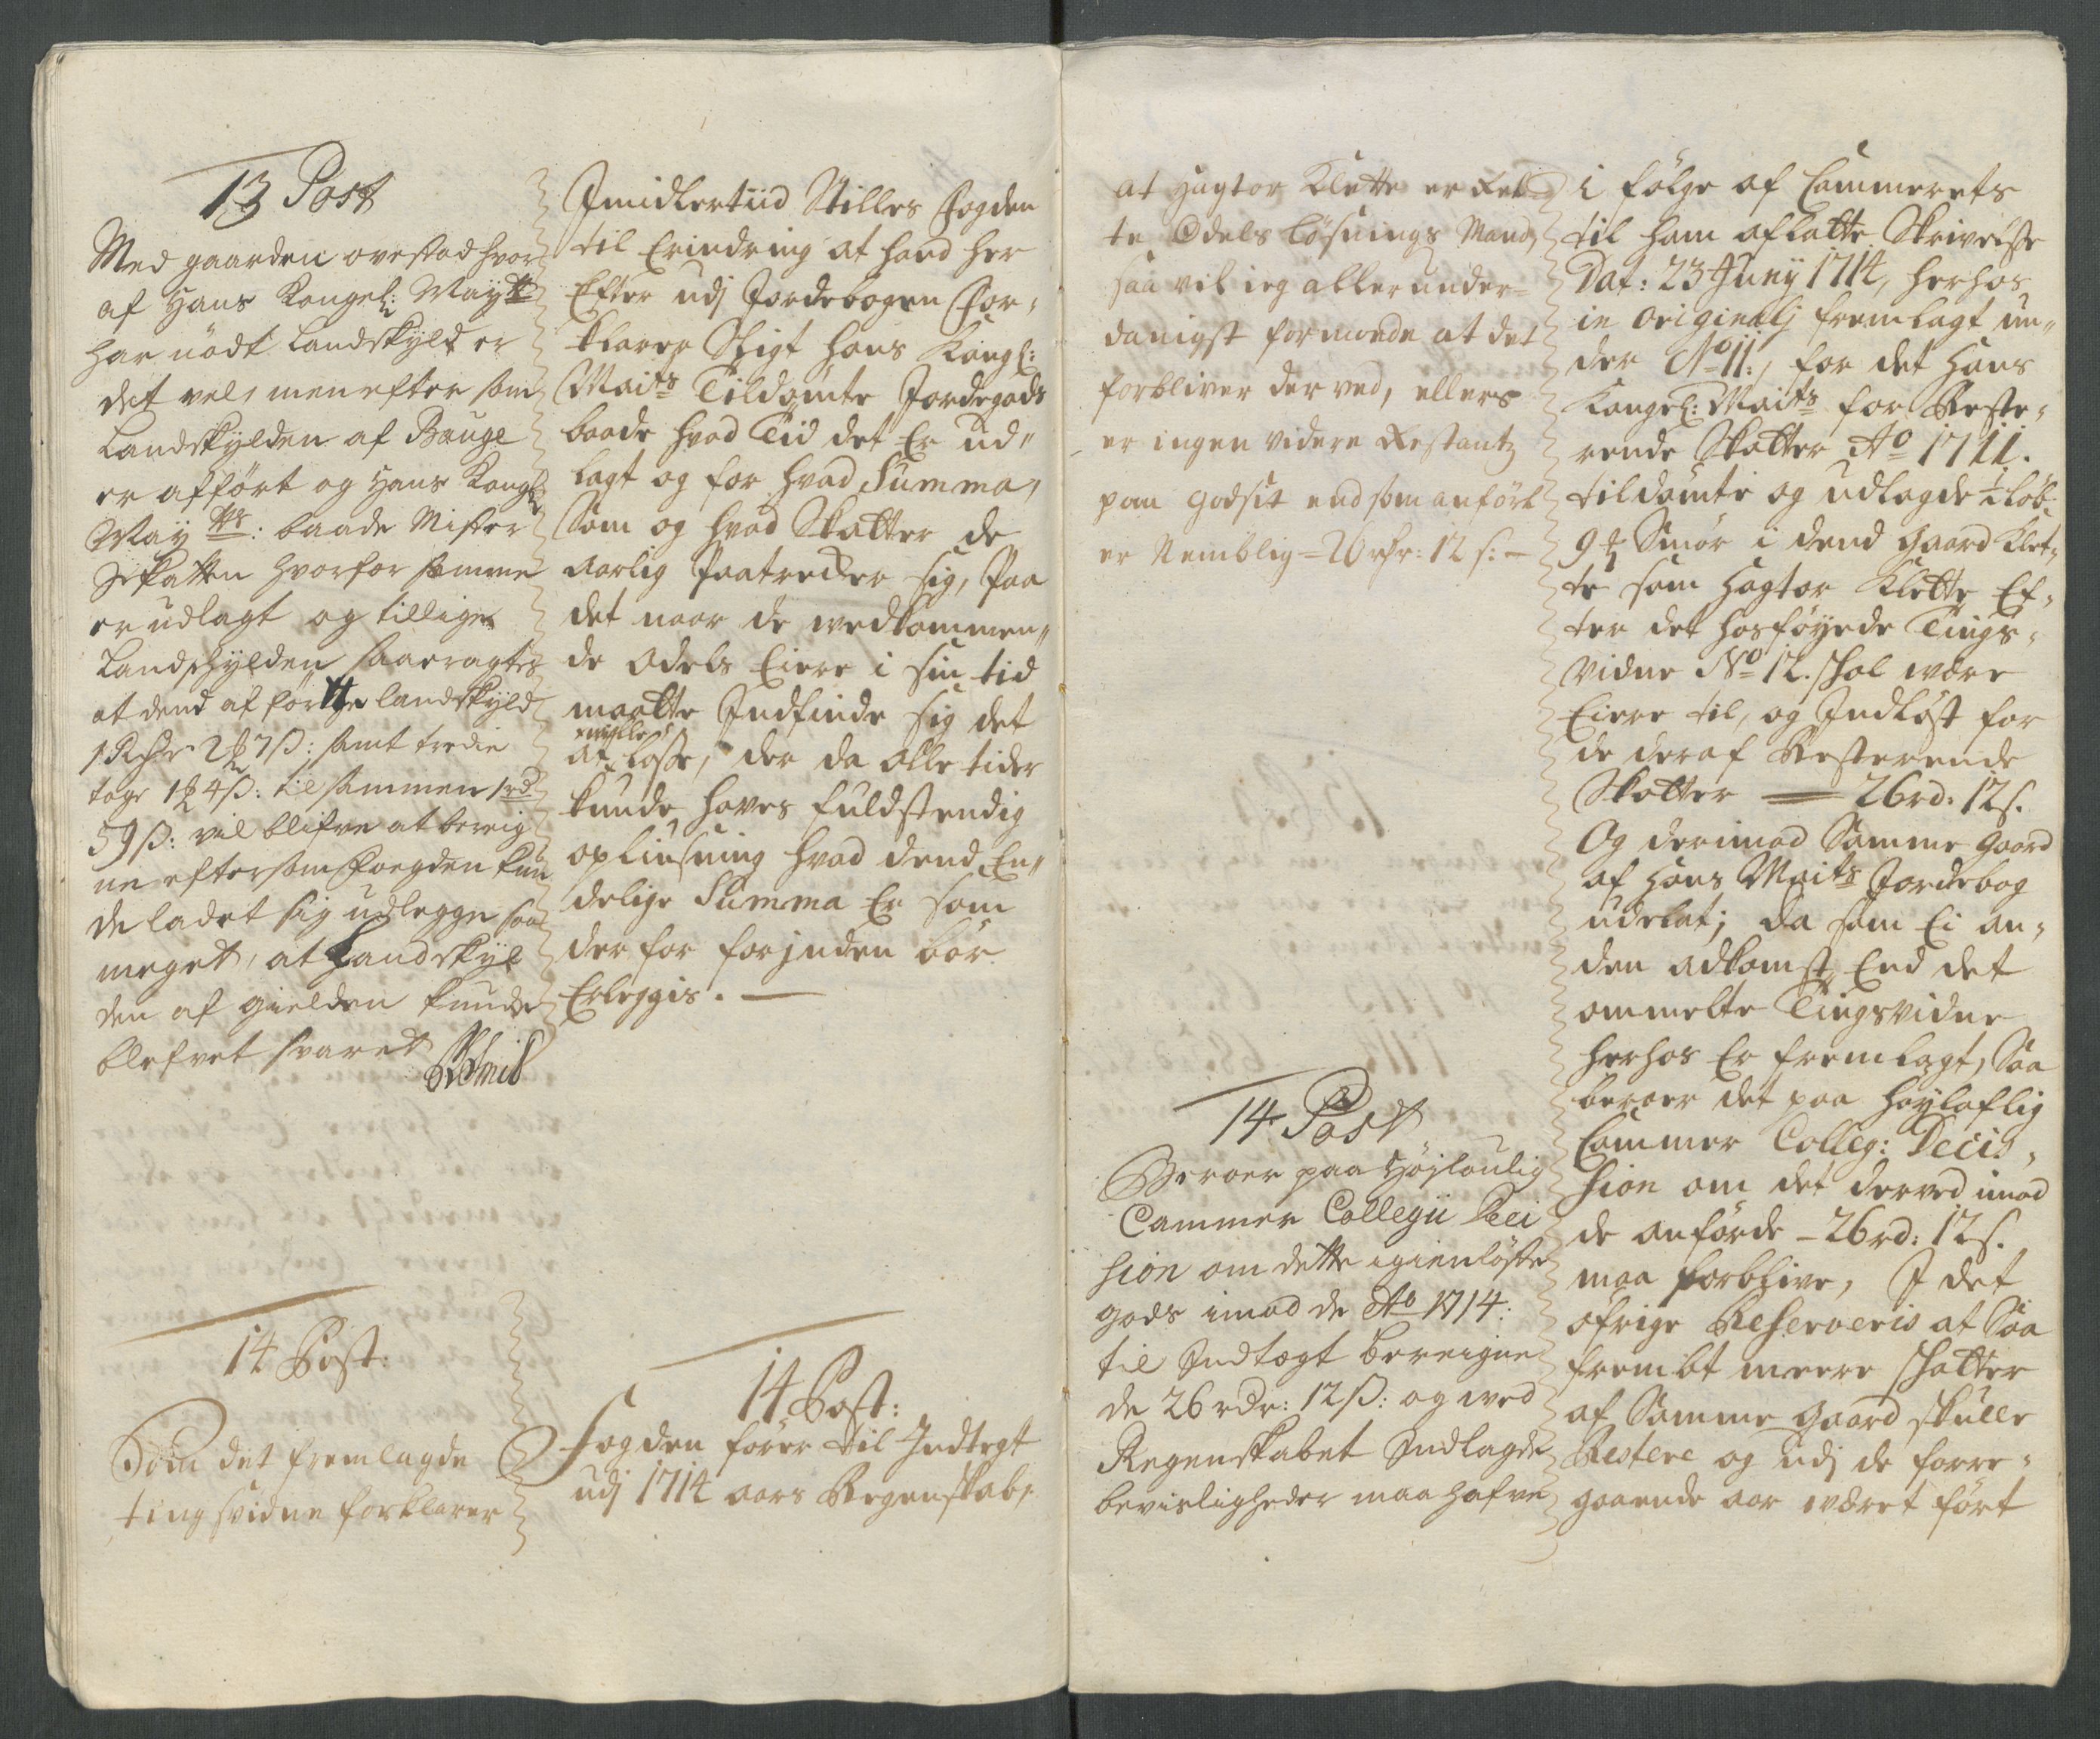 13 Post
Med gaarden ovestad hvor
af Hans Kongel: Maytt
har nödt Landskyld er
det vel, men efter som
Landskylden af Bauge
er afført og Hans Kongl
May tt: baade Mister
Skatten hvorfor samme
er udlagt og tillige
Landschylden, saa
at dend af førte landskyld
1 Rdr 2 ₰ 7 ß: samt tredie
tage 1 ₰ 4 ß: tilsammen 1 rd
59 ß: vil blifve at bereig
ne eftersom foegden kun
de ladet sig udlegge saa
meget, at Landskyl
den af gielden kunde
blefvet svaret
14 Post:
Som det fremlagde
tingsvidne forklarer
Imidlertiid Stilles Fogden
til Erindring at hand her
Efter udj Jordebogen For-
klarer Rigt hans Kongl:
Maits Tildømte Jordegods
baade hvad Tid det Er ud-
lagt og for hvad Summa,
Som og hvad Skatter de
aarlig Paatrecker sig, Paa
det naar de wedkommen-
de Odels Eiere i sin tid
maatte Indfinde sig det
wille
at löse, der da alle tider
kunde haves fuldstendig
opliusning hvad dend En-
delige Summa Er som
der for forinden bör
Erleggis. —
14 Post:
Fogden förer til Indtegt
udj 1714 aars Regenskab,
at Hagtor Klette er ret
te Odels Lösnings Mand,
saa vil ieg allerunder-
danigst formode at det
forbliver der ved, ellers
er ingen videre Restantz
paa godset end som anfört
er Nemblig = 26 rdr: 12 s: —
14 Post
Beroer paa Höjloulig
Cammer Collegii Deci
sion om dette igienlöste
gods imod de Ao 1714:
til Indtegt bereigne
de 26 rdr: 12 ß: og wed
Regenskabet Indlagde
bevisligheder maa hafve
i følge af Cammerets
til ham aflatte Skrivelse
Dat: 23 Juny 1714, herhos
in originalj fremlagt un-
der No 11:, for det Hans
Kongel: Maits for Reste-
rende Skatter Ao 1711.
tildömte og udlagde 1/2 löb
9 ₰ Smör i dend Gaard Klet-
te som Hagtor Klette Ef-
ter det hosföyede Tings-
vidne No 12. skal være
Eiere til, og Indlöst for
de deraf Resterende
Skatter — 26 rd. 12 s.
Og derimod Samme Gaard
af Hans Maits Jordebog
udelat; da som Ei an-
den adkomst End det
ommelte Tingsvidne
herhos Er fremlagt, Saa
beroer det paa Höylaflig
Cammer Colleg: Decis-
sion om det derved imod
de anförde – 26 rd: 12 s.
maa forblive, I det
öfrige Reserveris at Saa
frembt meere Skatter
af Samme Gaard skulle
Restere og udj de forre-
gaaende aar været fört